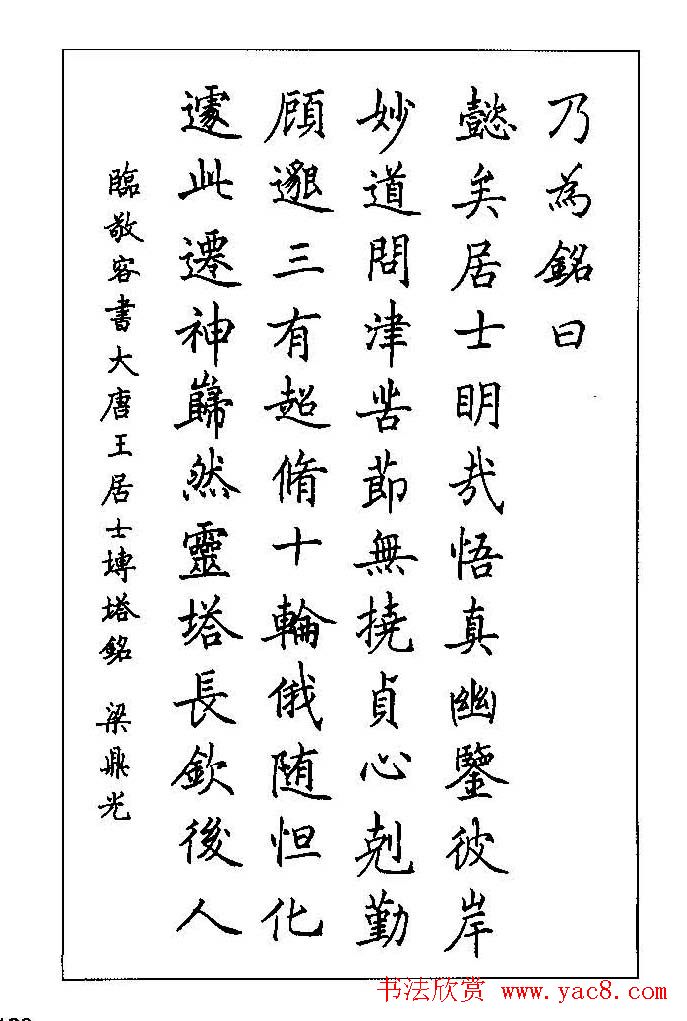 乃為銘曰
懿矣居士明哉悟真幽鑒彼岸
妙道問津苦節無撓貞心剋勤
顧邈三有超脩十輪俄随怛化
遽此遷神巋然靈塔長欽後人
臨敬容書大唐王居士塼塔銘 梁鼎光
书法欣赏 www.yac8.com